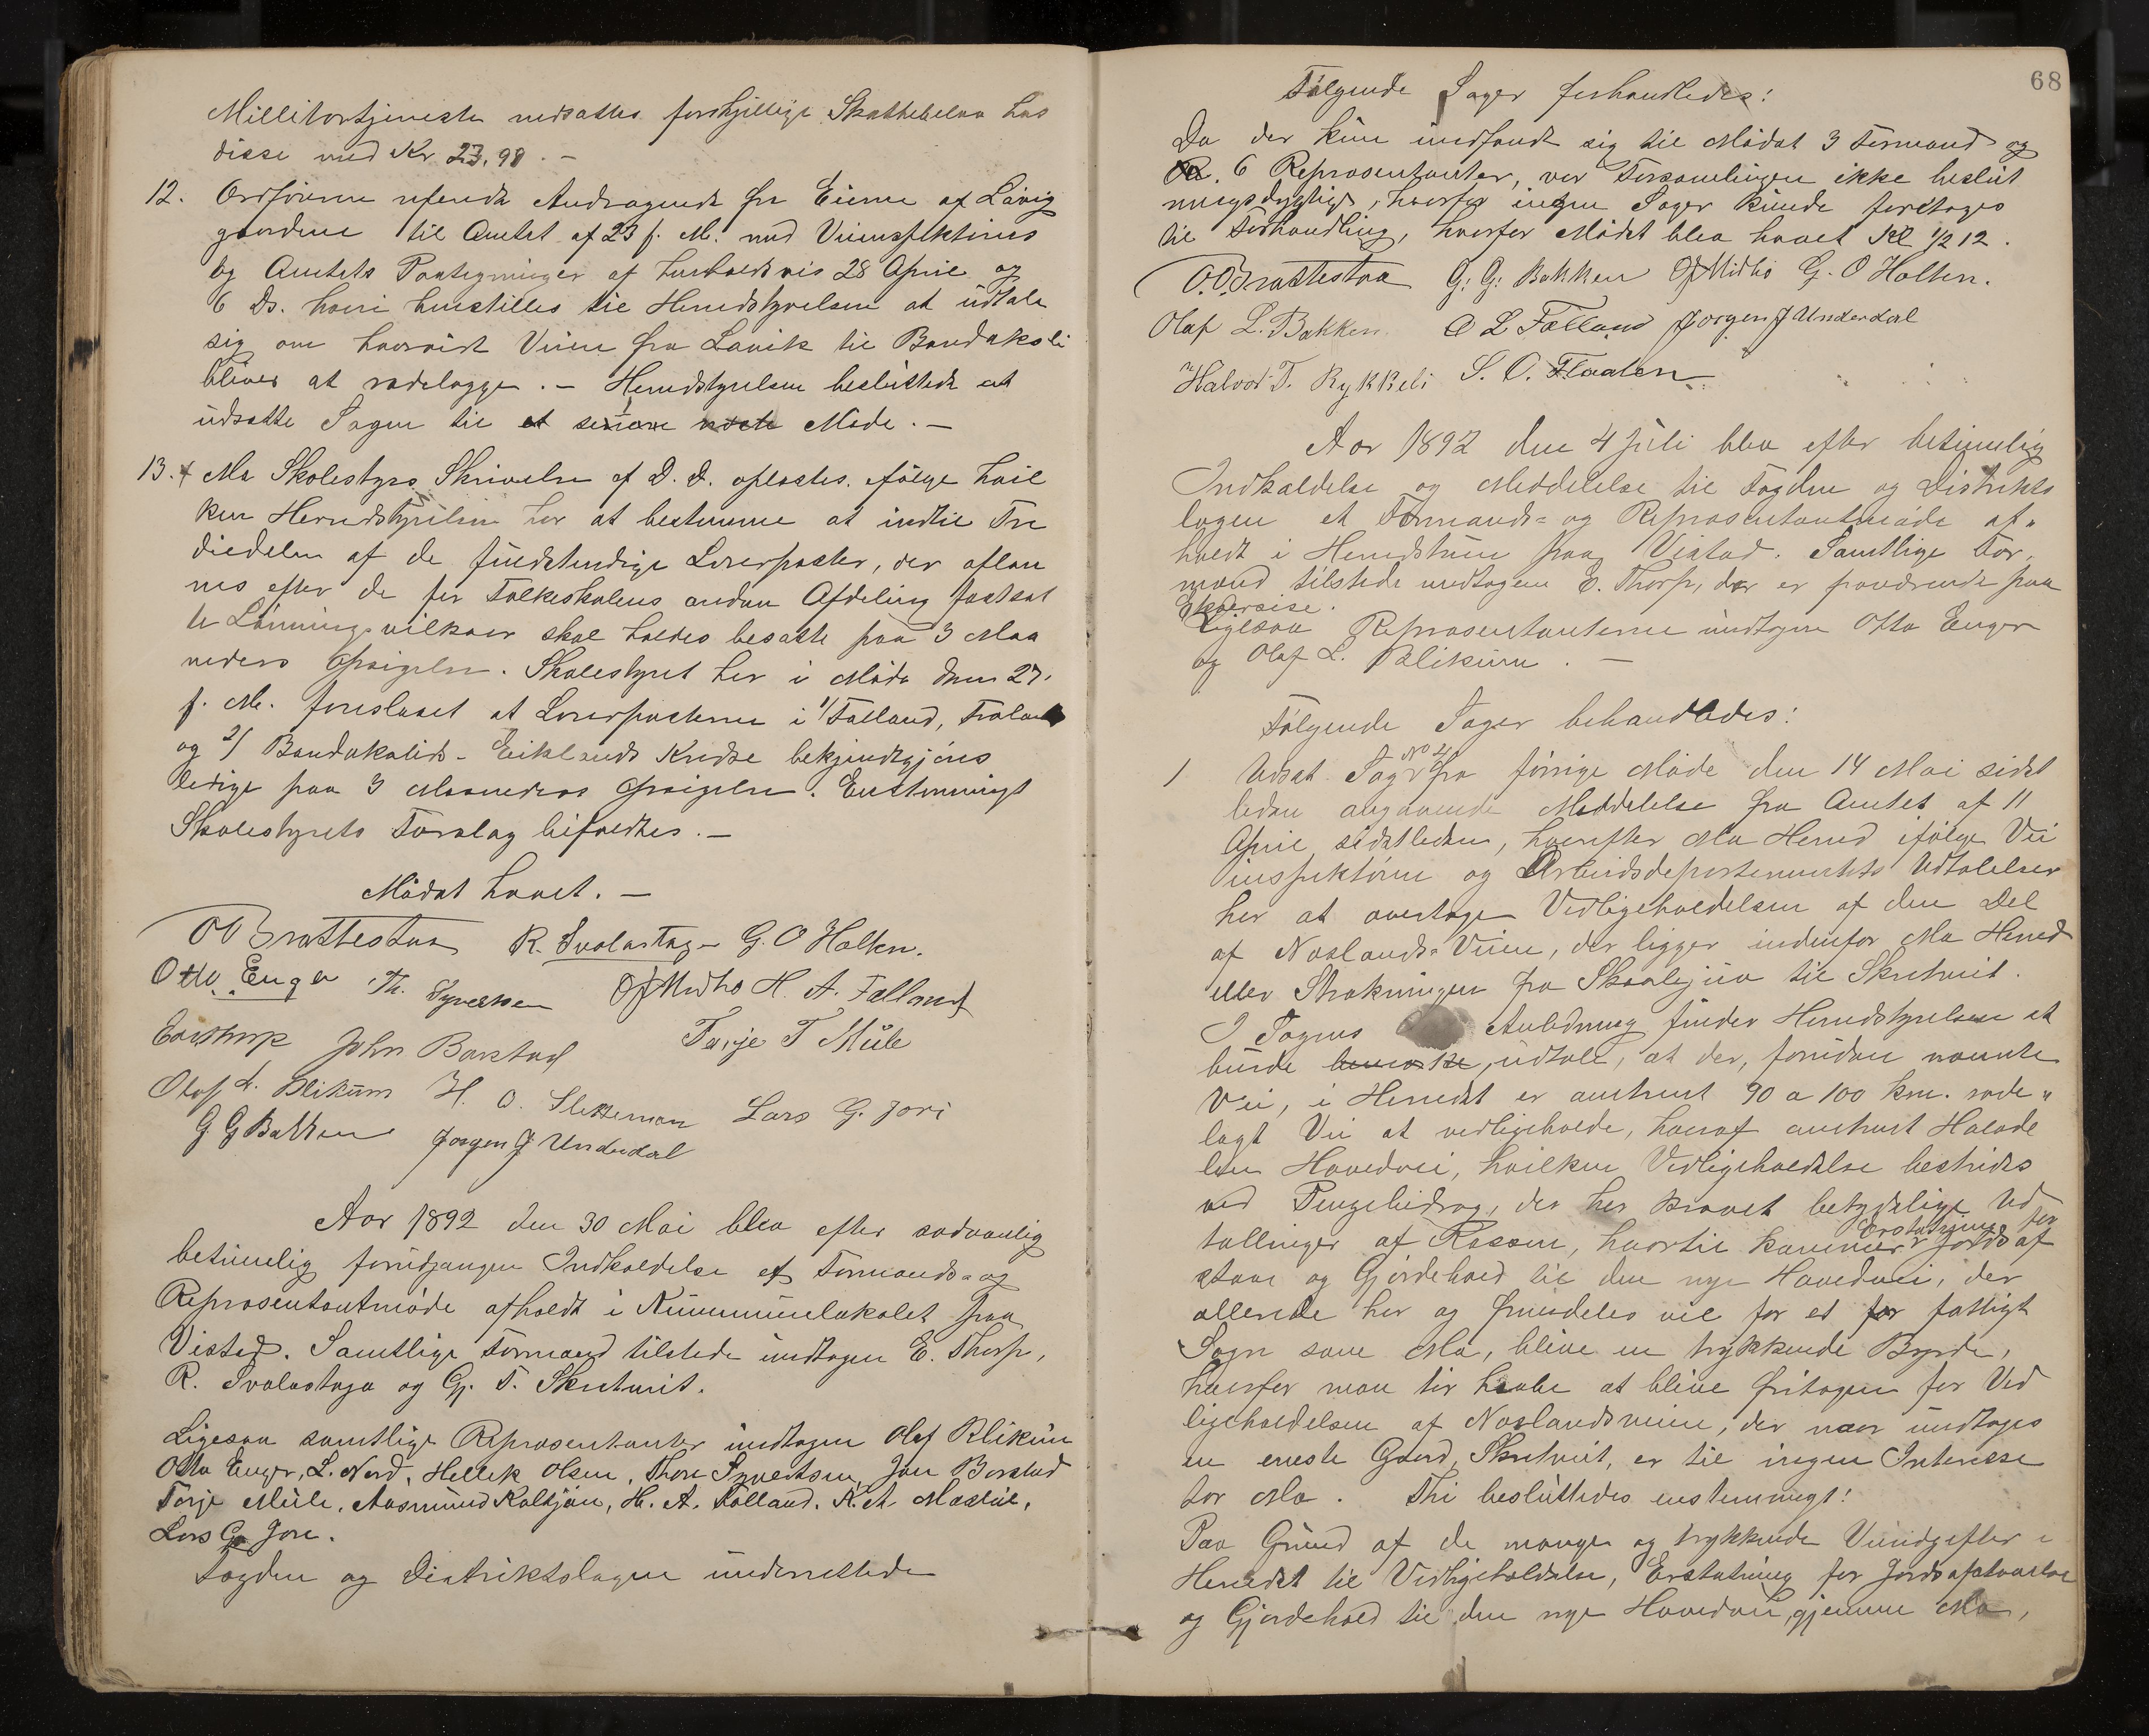 Millitærtjeneste nedsattes forskjellige Skattebeløb hos
disse med Kr 23,98. –
12. Ordføreren refererede Andragende fra Eierne af Lavig
gaardene til Amtet af 23 f. M. med Veiinspektørens
og Amtets Paategninger af henholdsvis 28 April og
6 Ds. hvori henstilles til Herredstyrelsen at udtale
sig om hvorvidt Veien fra Lavik til Bandaksli
bliver at rodelægge. – Herredstyrelsen besluttede at
udsætte Sagen til et senere næste Møde. –
13. Mo Skolestyrs Skrivelse af D. D. oplæstes ifølge hvil
ken Herredstyrelsen har at bestemme at indtil Tre
diedelen af de fuldstændige Lærerposter, der afløn
nes efter de for Folkeskolens anden Afdeling fastsat
te Lønningsvilkaar skal holdes besatte paa 3 Maa
neders Opsigelse. Skolestyret har i Møde den 27.
f. M. foreslaaet at Lærerposterne i 1/ Falland,
og 2/ Bandakslids - Eiklands Kredse bekjendtgjøres
ledige paa 3 Maaneders Opsigelse. Enstemmigt
Skolestyrets Forslag bifaldtes. –
Mødet hævet. –
O O Brattestaa R. Svalastoga G. O Holten.
Otto Enger Th. Syvertsen O J Midbø H. A. Falland
E. Thorp John Barstad Tarje T Mule
Olaf L. Blikum H. O. Slettemoen Lars G. Jore
G. G Bakken Jørgen J Underdal
Aar 1892 den 30 Mai blev efter sædvanlig
betimelig forudgangen Indkaldelse et Formands- og
Repræsentantmøde afholdt i Kommunelokalet paa
Vistad. Samtlige Formænd tilstede undtagen E. Thorp,
R. Svalastoga og Gj. T. Skutveit.
Ligesaa samtlige Repræsentanter undtagen Olaf Blikum
Otto Enger, L. Nord, Hellik Olsen, Thore Syvertsen, Jon Barstad
Tarje Mule, Aasmund Kaltjøn, H. A. Falland, K. A. Moslid,
Lars G. Jore.
Fogden og Distriktslægen underrettede
68
Følgende Sager forhandledes:
Da der kun indfandt sig til Mødet 3 Formænd og
6 Repræsentanter, var Forsamlingen ikke beslut
ningsdygtig, hvorfor ingen Sager kunde foretages
til Forhandling, hvorfor Mødet blev hævet Kl 1/2 12.
O. O. Brattestaa G. G. Bakken O J Midbø G. O Holten.
Olaf L. Bakken O L Fælland Jørgen J Underdal
Halvor T. Rykkeli S. O. Flaaten
Aar 1892 den 4 Juli blev efter betimelig
Indkaldelse og Meddelelse til Fogden og Distrikts
lægen et Formands- og Repræsentantmøde af-
holdt i Herredstuen paa Vistad. Samtlige For-
mænd tilstede undtagen E. Thorp, der er fraværende paa
Ekserсise.
Ligesaa Repræsentanterne undtagen Otto Enger
og Olaf L. Blikum. –
Følgende Sager behandledes:
1 Udsat Sag No 4 fra forrige Møde den 14 Mai sidst
leden angaaende Meddelelse fra Amtet af 11
April sidstleden, hvorefter Mo Herred ifølge Vei
inspektøren og Arbeidsdepartementets Udtalelser
har at overtage Vedligeholdelsen af den Del
af Naslands-Veien, der ligger indenfor Mo Herred
eller Strækningen fra til Skutveit.
I Sagens Anledning finder Herredstyrelsen at
burde bemærke, udtale, at der, foruden nævnte
Vei, i Herredet er omtrent 90 a 100 km. rode-
lagt Vei at vedligeholde, hvoraf omtrent Halvde
len Hovedvei, hvilken Vedligeholdelse bestrides
ved Pengebidrag, der har krævet betydelige Ud
tællinger af Kassen, hvortil kommer Erstatning for Jordaf
staaelse og Gjerdehold til den nye Hovedvei, der
allerede har og fremdeles vil for et for fattigt
Sogn som Mo, blive en trykkende Byrde,
hvorfor man tør haabe at blive fritagen for Ved
ligeholdelsen af Naslandsveien, der naar undtages
en eneste Gaard, Skutveit, er til ingen Interesse
for Mo. Thi besluttedes enstemmigt:
Paa Grund af de mange og trykkende Veiudgifter i
Herredet til Vedligeholdelse, Erstatning for Jordafstaaelse
og Gjerdehold til den nye Hovedvei, gjennem Mo,